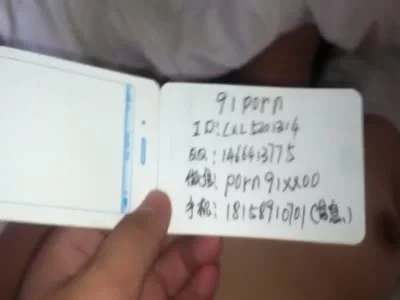 91porn
ID:LXL5201314
QQ:1466413775
微信:porn91xx00
手机:18158910701(信息)